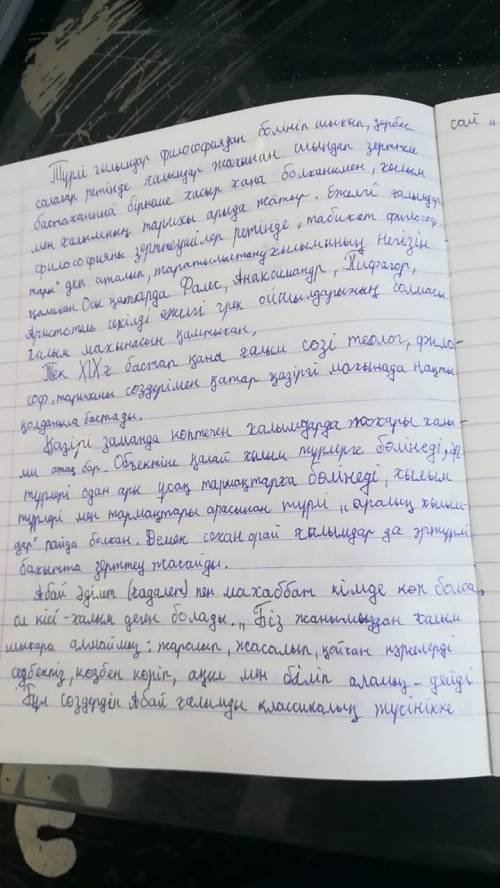 Түрлі ғылымдар философиядан бөлініп шығып, дербес
салалар ретінде ғалымдар жағынан шындап зерттеле
бастағанына бірнеше ғасыр ғана болғанымен, ғылым
мен ғалымның тарихы арыда жатыр. Ежелгі ғалымдар
философияны зерттеушілер ретінде "табиғат философ-
тары" деп аталып, жаратылыстану ғылымының негізін
қалаған Осы қатарда Фалес, Анаксимандр, Пифагор,
Аристотель секілді ежелгі грек ойшылдарының болмысы
ғалым мағынасын қамтыған,
Тек XIXғ бастап қана ғалым сөзі теолог, фило-
соф, тарихшы сөздерімен қатар қазіргі мағынада нақты
қолданыла бастады.
Қазіргі заманда көптеген ғалымдарда жоғары ғылы-
ми атақ бар. Объектіне қарай ғылым түрлерге бөлінеді,
түрлері одан ары ұсақ тармақтарға бөлінеді, ғылым
түрлері мен тармақтары арасынан түрлі "аралық ғылым-
дар" пайда болған. Демек соған орай ғылымдар да әртүрлі
бағытта зерттеу жасайды.
Абай Әділет (ғадалет) пен махаббат кімде көп болса,
ол кісі-ғалым деген болады. "Біз жанымыздан ғалым
шығара алмаймыз: жаралып, жасалып, қойған нәрселерді
седбектіз, көзбен көріп, ақыл мен біліп аламыз - дейді
Бұл сөздерден Абай ғалымды классикалық түсінікке
сай "